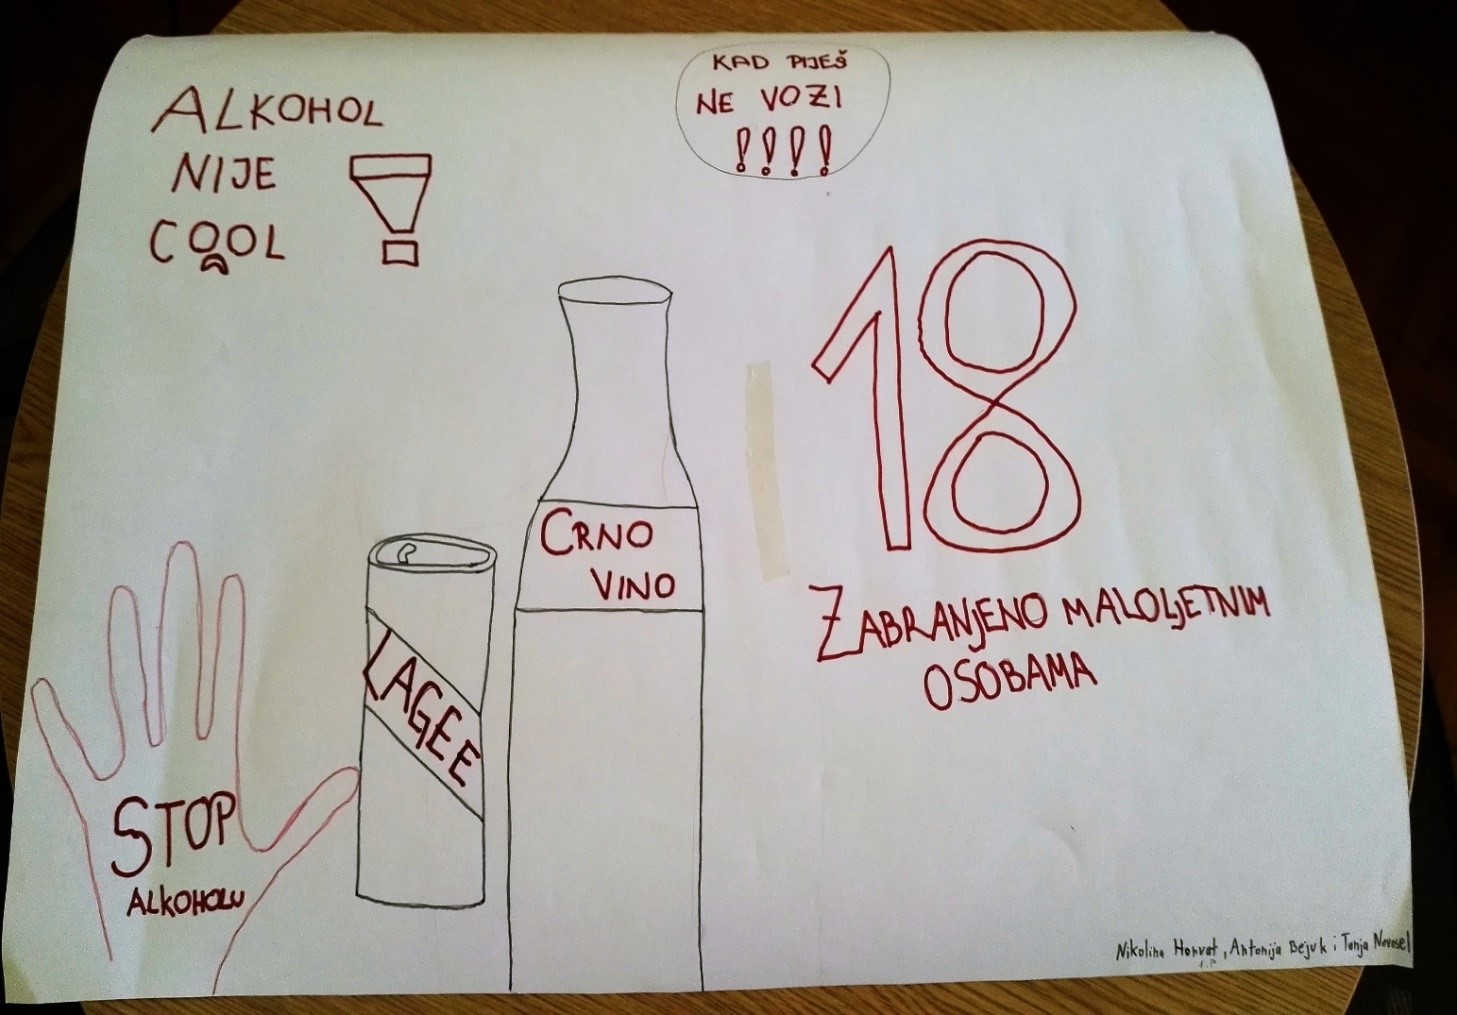 ALKOHOL
NIJE
COOL !
KAD PIJEŠ
NE VOZI
!!!!
18
ZABRANJENO MALOLJETNIM
OSOBAMA
CRNO
VINO
LAGEE
STOP
ALKOHOLU
Nikolina Horvat, Antonija Bejuk i Tanja Novosel